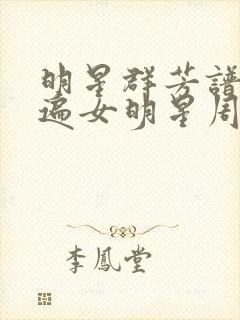 明星群芳譜
遍女明星周
李鳳堂